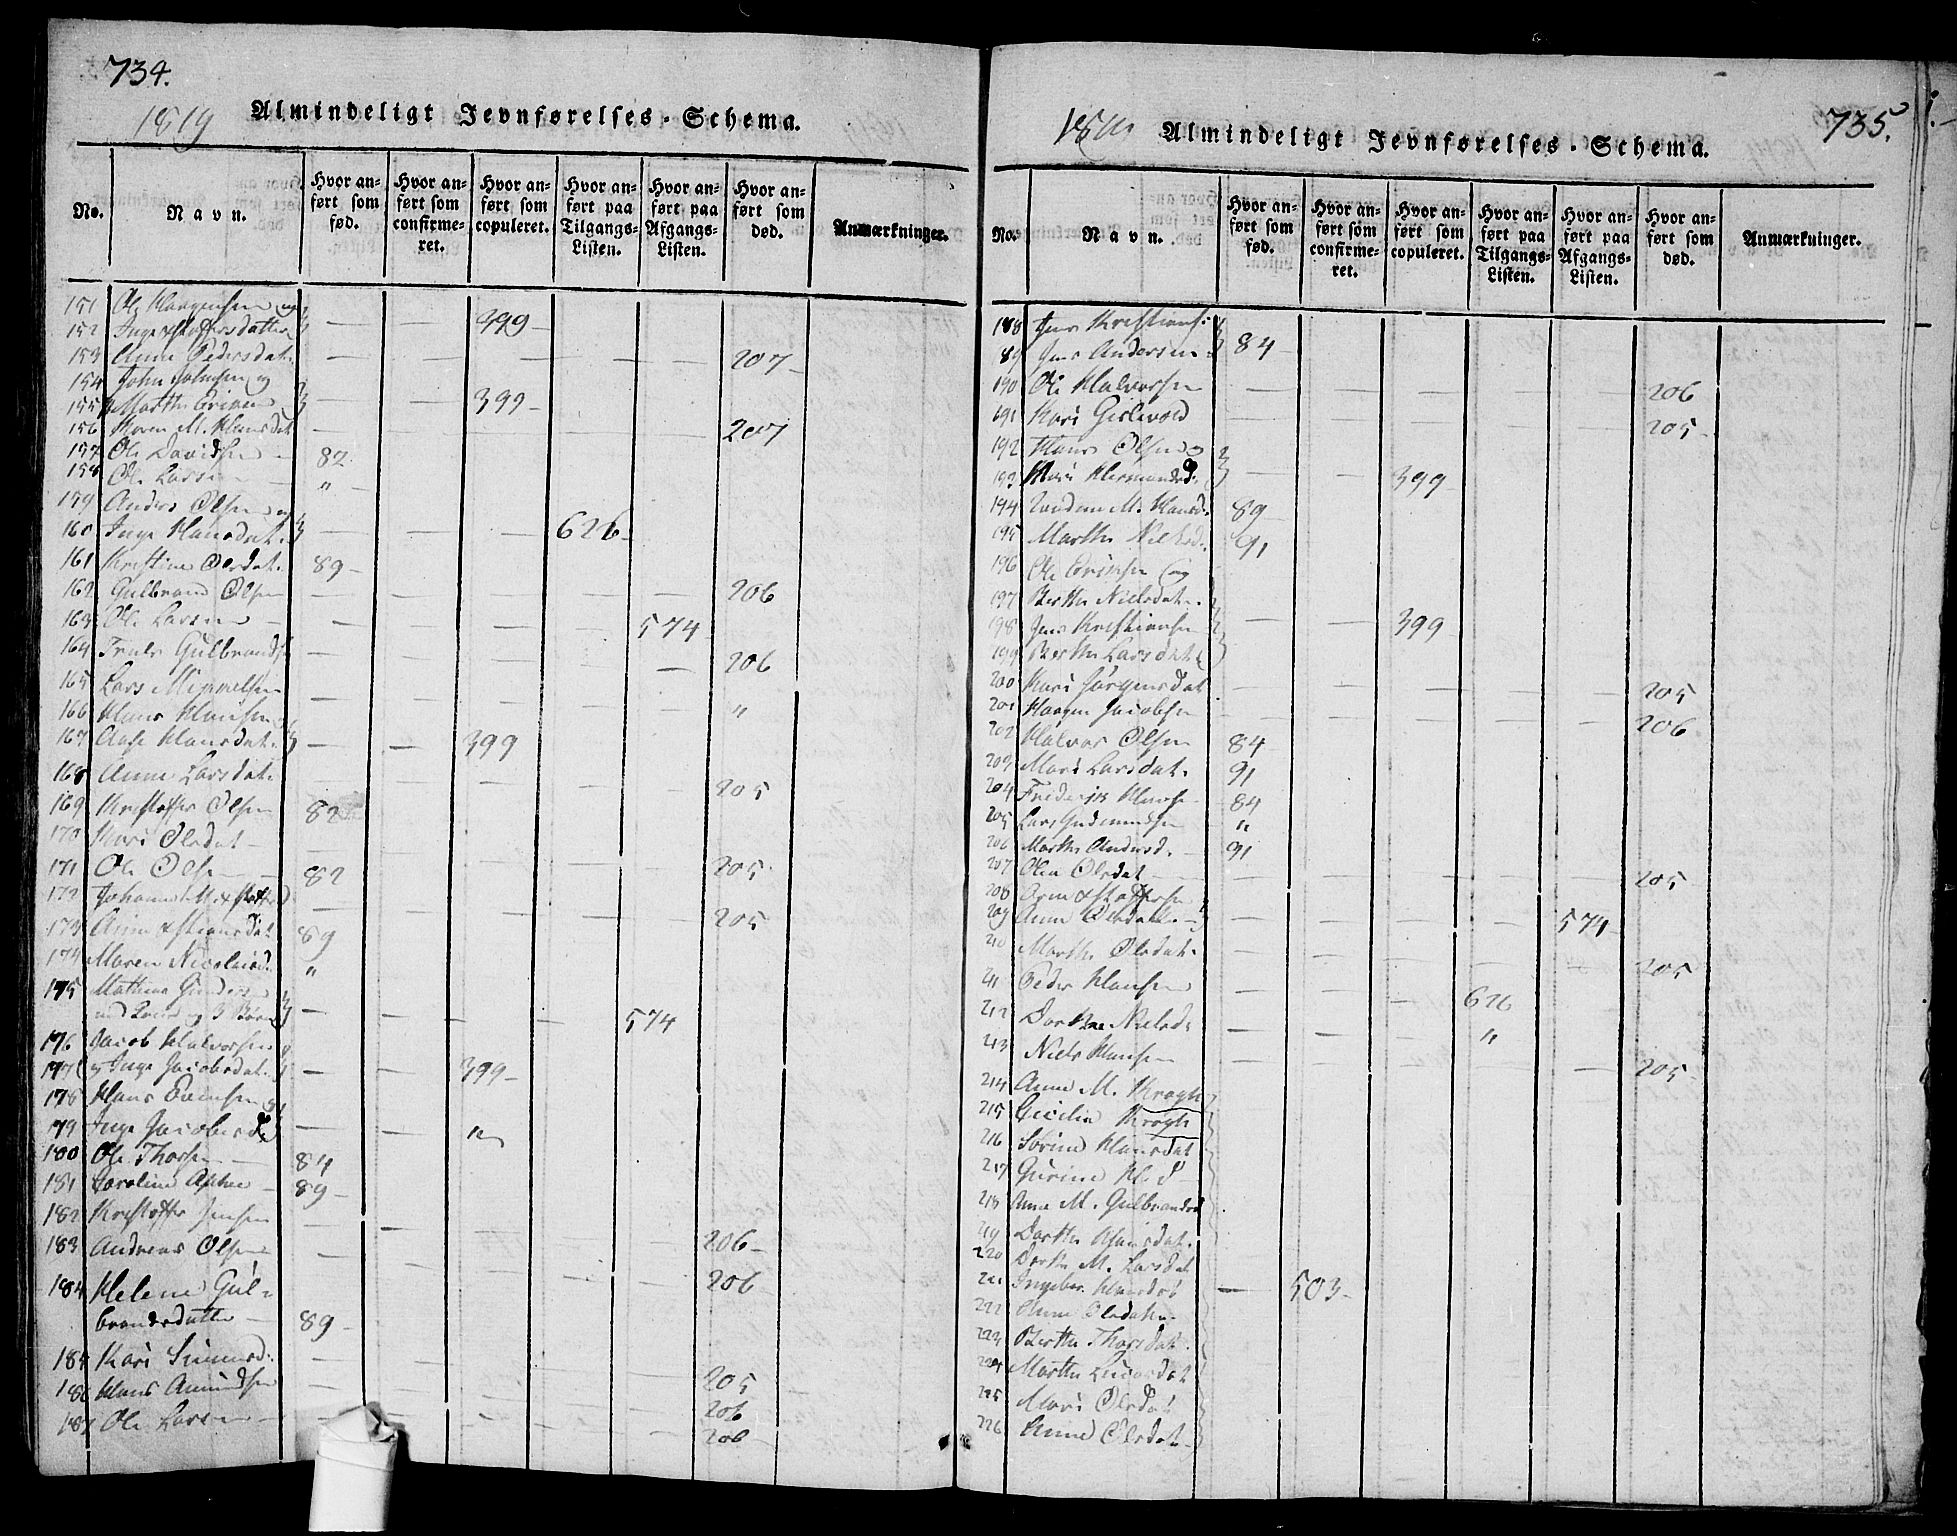 734.
1819 Almindeligt Jevnførelses-Schema.
No. Navn. Hvor anført som fød. Hvor anført som confirmeret. Hvor anført som copuleret. Hvor anført paa Tilgangs-Listen. Hvor anført paa Afgangs-Listen. Hvor anført som død. Anmærkninger.
151 Ole Haagensen og
152 Inge Xstoffersdatter — — 399-
153 Anne Pedersdat. — — — — — 207-
154 John Johnsen og
155 Marthe — — 399-
156 Karen M. Hansdat — — — — — 207
157 Ole Davidsen - 82
158 Ole Larsen — "
159 Anders Olsen og
160 Inge Hansdat. — — — 626-
161 Kristine Olsdat. 89-
162 Gulbrand Olsen — — — — — 206
163 Ole Larsen — — — — 574
164 Truls Gulbrandsen — — — — — 206
165 Lars Mimmelsen — — — — — "
166 Hans Hansen og
167 Aase Hansdat. — — 399
168 Anne Larsdat. — — — — — 205
169 Kristoffer Olsen 82
170 Kari Olsdat — — — — — 205
171 Ole Olsen — 82
172 Johanne M. — — — — — 205
173 Anne Xstiansdat 89
174 Maren Nicolaisd. "
175 Mathias Gunders
med Kone og 3 Børn — — — — 574
176 Jacob Halvorsen
177 og Inge Jacobsdat. — — 399-
178 Hans Evensen og
179 Inge Jacobsd — — "
180 Ole Thorsen — 84
181 Caroline — 89-
182 Kristoffer Jensen — — — — — 206-
183 Andreas Olsen — — — — — 206
184 Helene Gul-
brandsdatter — 89-
185 Kari Simensd. — — — — — 205
186 Hans Amundsen — — — — — 206
187 Ole Larsen — — — — — 206
735.
Almindeligt Jevnførelses-Schema.
No. Navn. Hvor anført som fød. Hvor anført som confirmeret. Hvor anført som copuleret. Hvor anført paa Tilgangs-Listen. Hvor anført paa Afgangs-Listen. Hvor anført som død. Anmærkninger.
188 Jens Kristians.
89 Jens Andersen 84
190 Ole Halvorsen — — — — — 206
191 Kari Gislevold — — — — — 205-
192 Hans Olsen og
193 Mari Hermandsd. — — 399-
194 M. Hansd. 89-
195 Marthe Nielsd. 91
196 Ole Ericksen og
197 Berthe Nielsdat.
198 Jens Kristiansen — — 399
199 Berthe Larsdat.
200 Kari Jørgensdat — — — — — 205
201 Haagen Jacobsen — — — — — 206
202 Halvor Olsen 84
203 Mari Larsdat. 91
204 Friderich Hansen 84
205 Lars Gudmundsen "
206 Marthe Andersd. 91
207 Olea Olsdat — — — — — 205
208 Arne Xstoffersen
209 Anne Olsdat. — — — — 574-
210 Marthe Olsdat. — — — — — 205
211 Peder Hansen — — — 626
212 Dorthe Nielsd. — — — "
213 Niels Hansen — — — — — 205-
214 Anne M. Krogh
215 Cecilia Krogh
216 Sørine Hansdat
217 Gurine H. d
218 Anne M. Gulbrandsd
219 Dorthe Hansdat.
220 Dorthe M. Larsdat
221 Ingebor Hansdat — 503-
222 Anne Olsdatter
223 Berthe Thorsdat.
224 Marthe Lucasdat
225 Mari Olsdat
226 Anne Olsdat